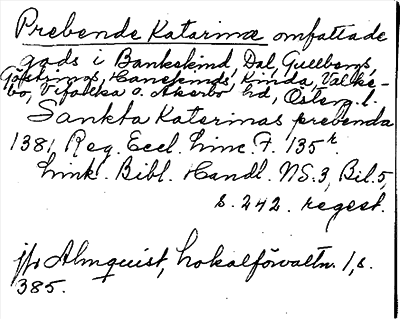 Prebende Katarinæ omfattade
gods i Bankekind, Dal, Gullbergs,
Göstrings, Hanekinds, Kinda, Valke-
bo, Vifolka o. Åkerbo hd, Österg. l.
Sankta Katarinas prebenda
1381, Reg. Eccl. Linc. F. 135r.
Link. Bibl. Handl. NS. 3, Bil. 5,
s. 242. regest.
jfr Almquist, Lokalförvaltn. 1, s.
385.